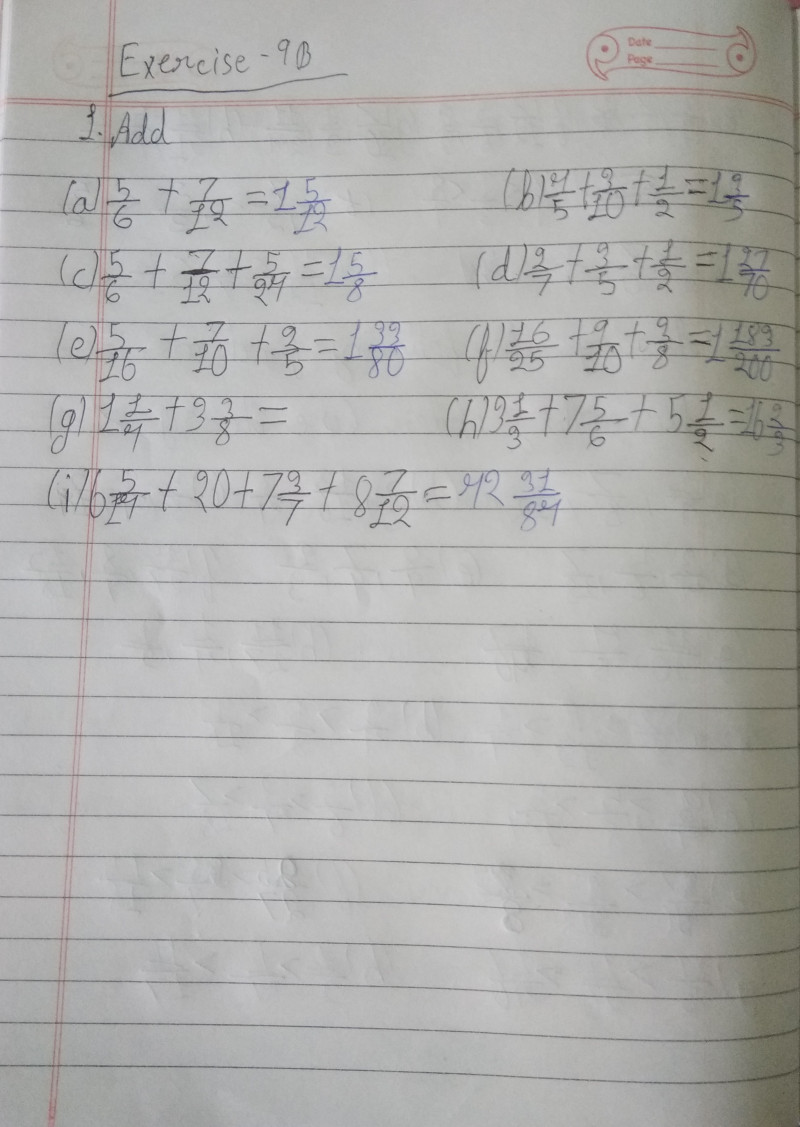 Exercise - 9B
Date
Page
1. Add
(a) 5/6 + 7/12 = 1 5/12 (b) 4/5 + 3/10 + 1/2 = 1 3/5
(c) 5/6 + 7/12 + 5/24 = 1 5/8 (d) 2/7 + 3/5 + 1/2 = 1 27/70
(e) 5/16 + 7/10 + 2/5 = 1 33/80 (f) 16/25 + 9/10 + 3/8 = 1 183/200
(g) 1 1/4 + 3 3/8 = (h) 3 1/3 + 7 5/6 + 5 1/2 = 16 2/3
(i) 6 5/14 + 20 + 7 3/7 + 8 7/12 = 42 31/84